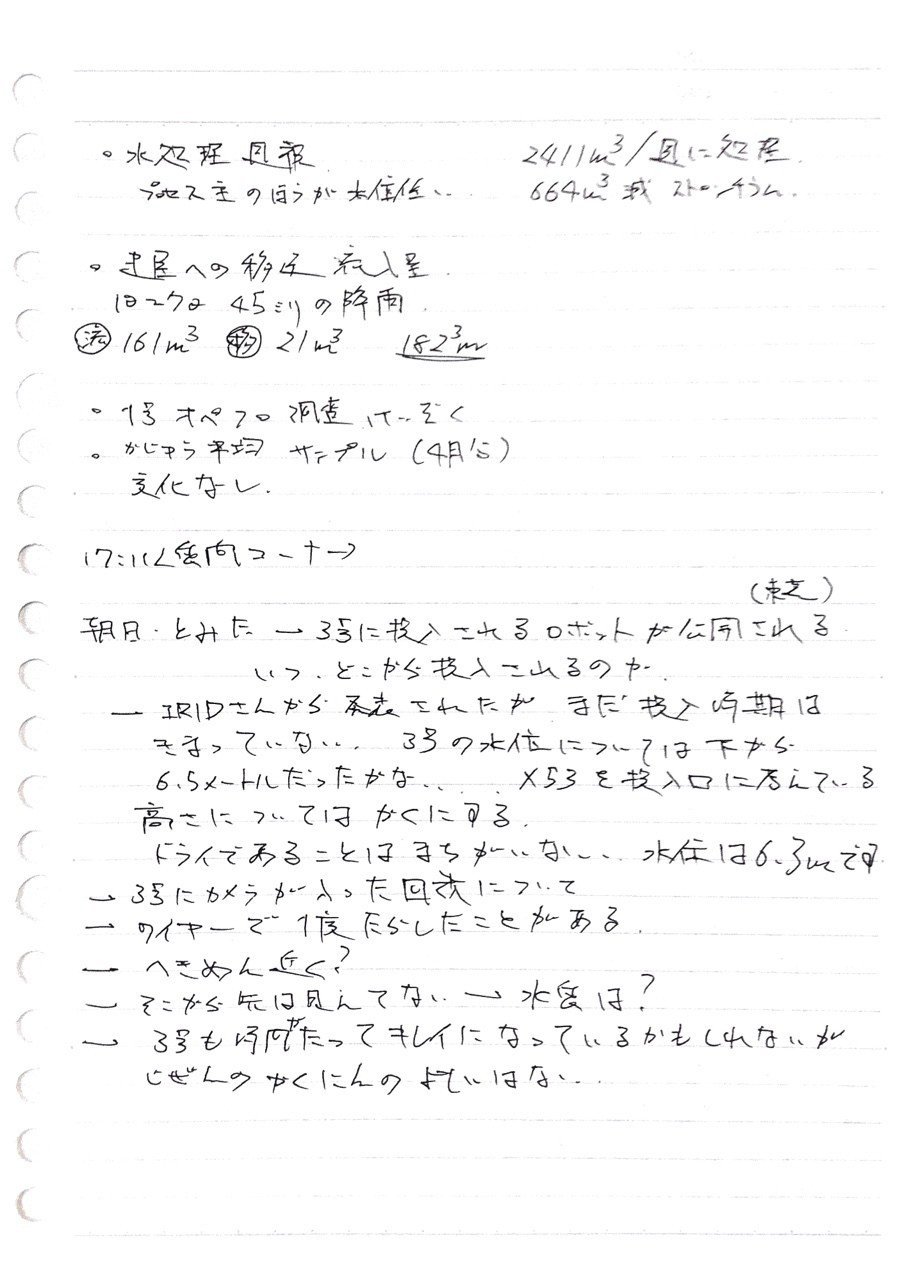 ・水処理週報 2411m³/週に処理
プロセス主のほうが水位低い 664m³減 ストロンチウム
・建屋への移送流入量
45ミリの降雨
流 161m³ 移 21m³ 182³m
・1号オペフロ調査 けーぞく
・かじゅう平均 サンプル (4月分)
変化なし.
17:11〜質問コーナー→
(東芝)
朝日・とみた → 3号に投入されるロボットが公開される
いつ.どこから投入されるのか
→ IRIDさんから発表されたが まだ投入時期は
きまっていない.. 3号の水位については下から
6.5メートルだったかな..... X53を投入口に考えている
高さについてはかくにする.
ドライであることはまちがいない.. 水位は6.3mです
→ 3号にカメラが入った回数について
→ ワイヤーで1度たらしたことがある.
→ へきめん近く?
→ そこから先は見えてない → 水質は?
→ 3号も時間がたってキレイになっているかもしれないが
じぜんのかくにんのよていはない..